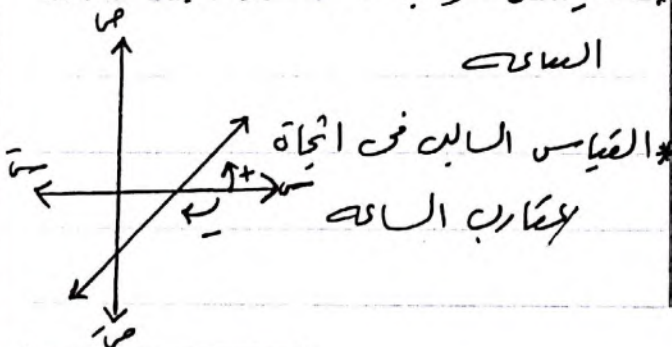 الساعه
* القياس السالب فى اتجاة
عقارب الساعه
ص
سَ
س
+
-
صَ